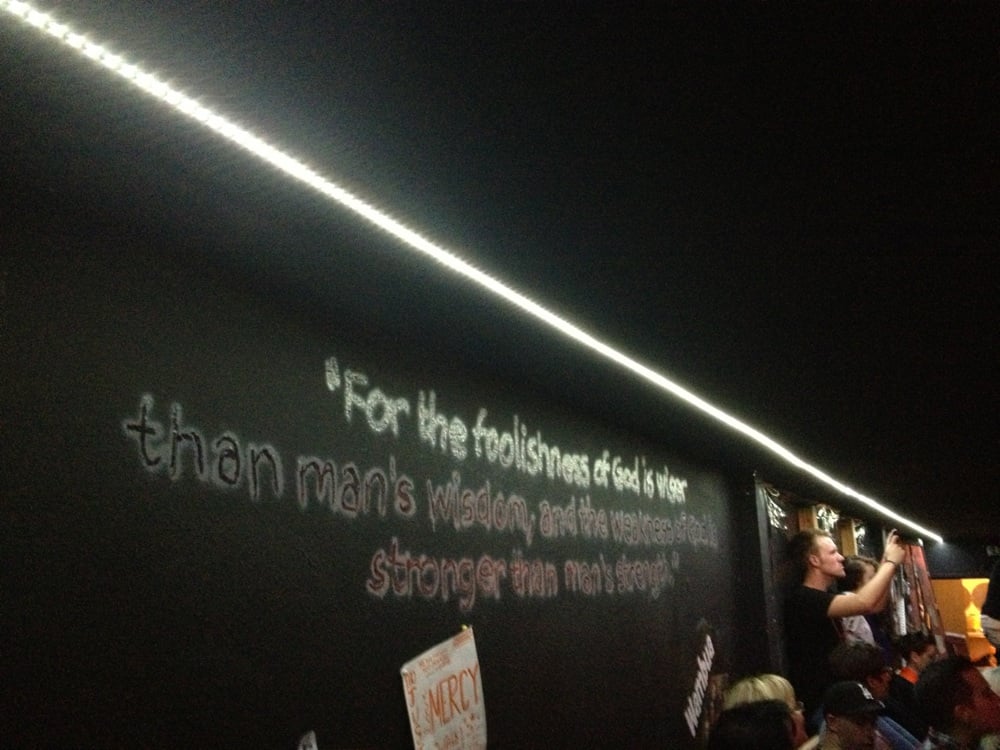 "For the foolishness of God is wiser
than man's wisdom, and the weakness of God is
stronger than man's strength."
MERCY